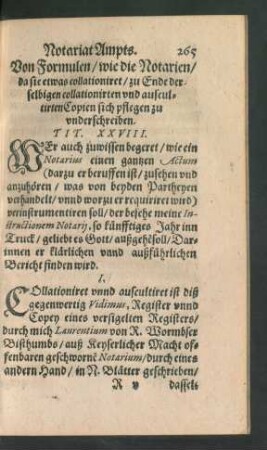 Notariat Ampts. 265
Von Formulen / wie die Notarien /
da sie etwas collationiret / zu Ende der-
selbigen collationirten vnd auscul-
tirten Copien sich pflegen zu
vnderschreiben.
TIT. XXVIII.
WEr auch zuwissen begeret / wie ein
Notarius einen gantzen Actum
(darzu er beruffen ist / zusehen vnd
anzuhören / was von beyden Partheyen
verhandelt / vnnd worzu er requiriret wird)
verinstrumentiren soll / der besehe meine In-
structionem Notarij, so künfftiges Jahr inn
Truck / geliebt es Gott / außgehē soll / Dar-
innen er klärlichen vand außführlichen
Bericht finden wird.
I.
COllationiret vnnd auscultiret ist diß
gegenwertig Vidimus, Register vnnd
Copey eines versigelten Registers /
durch mich Laurentium von R. Wormbser
Bisthumbs / auß Keyserlicher Macht of-
fenbaren geschwornē Notarium / durch eines
andern Hand / in N. Blätter geschrieben /
R v dasselb